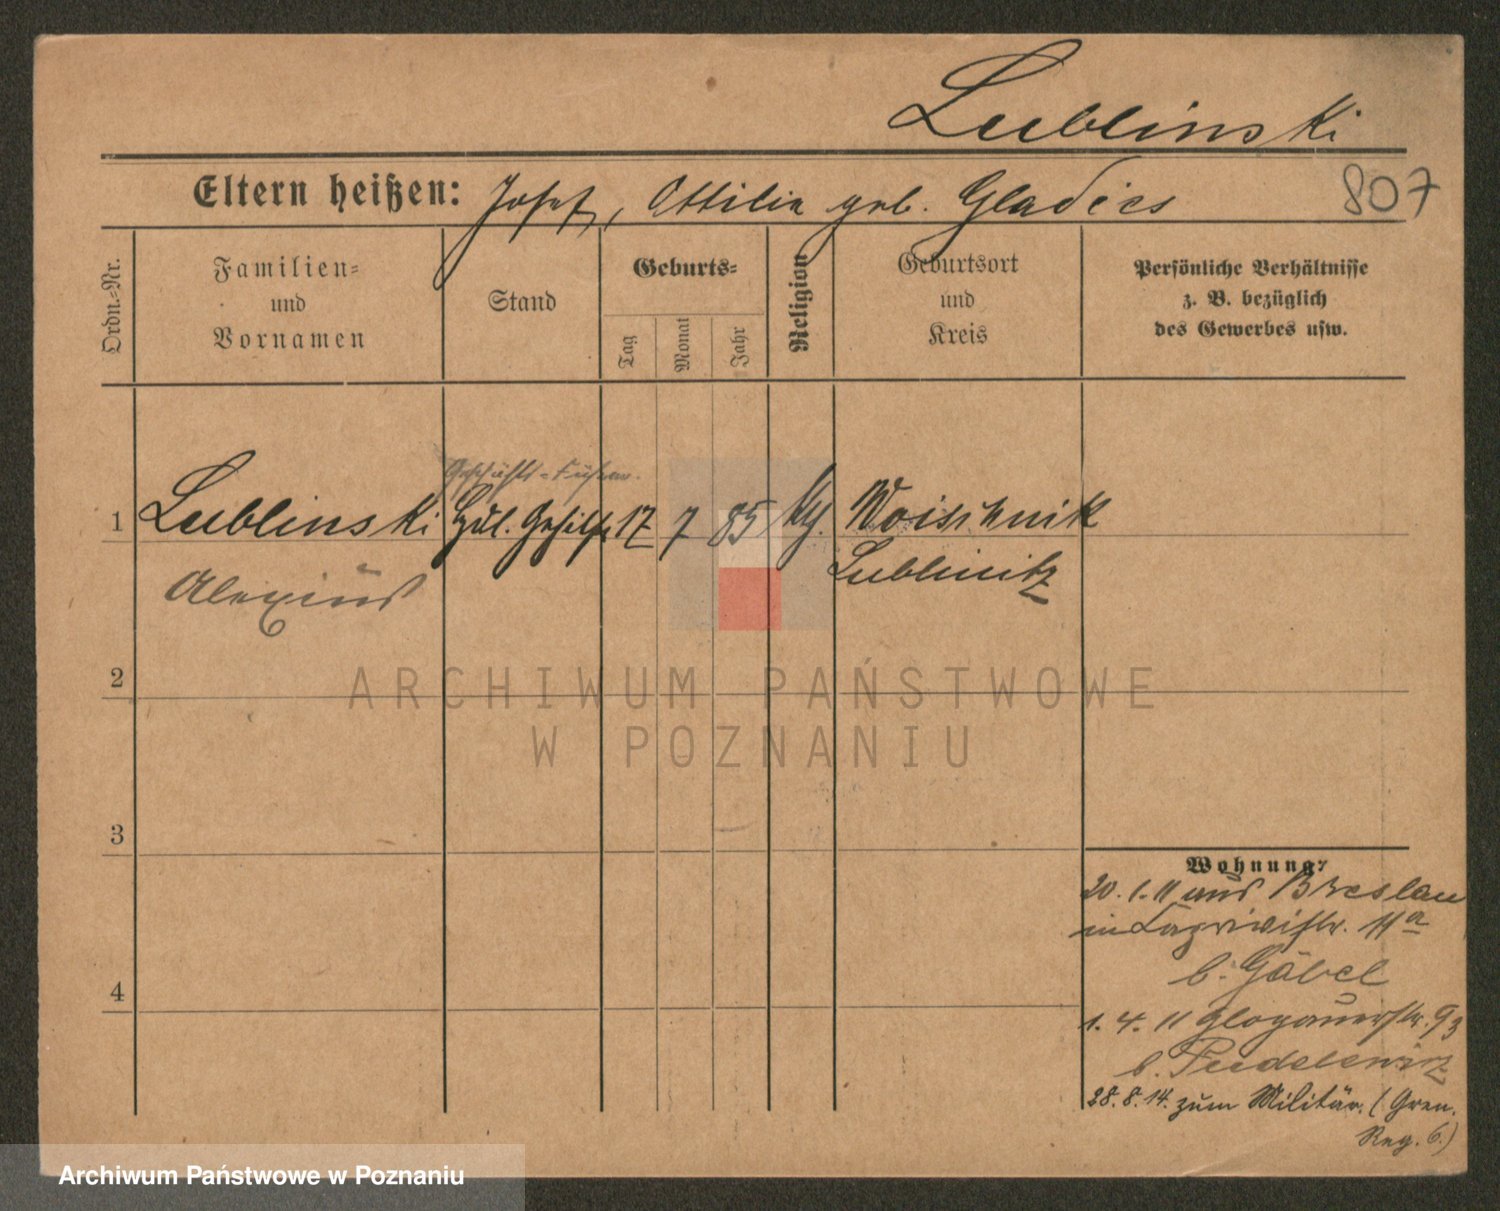 Lublinski
Eltern heißen: Josef, Ottilie geb. Gladies
807
Ordn.-Nr.
Familien-
und
Vornamen
Stand
Geburts-
Tag
Monat
Jahr
Religion
Geburtsort
und
Kreis
Persönliche Verhältnisse
z. B. bezüglich
des Gewerbes usw.
Geschäfts-Führer.
1 Lublinski Gehilfe 17 7 85 Woischnik
Alexius Lublinitz
2
ARCHIWUM PAŃSTWOWE
W POZNANIU
3
Wohnung:
20.1.11 aus Breslau
in Caprivistr. 11a
b. Gäbel
4
1.4.11 Glogauerstr. 93
b. Pudelewicz
28.8.14. zum Militär. (Gren.
Reg. 6.)
Archiwum Państwowe w Poznaniu